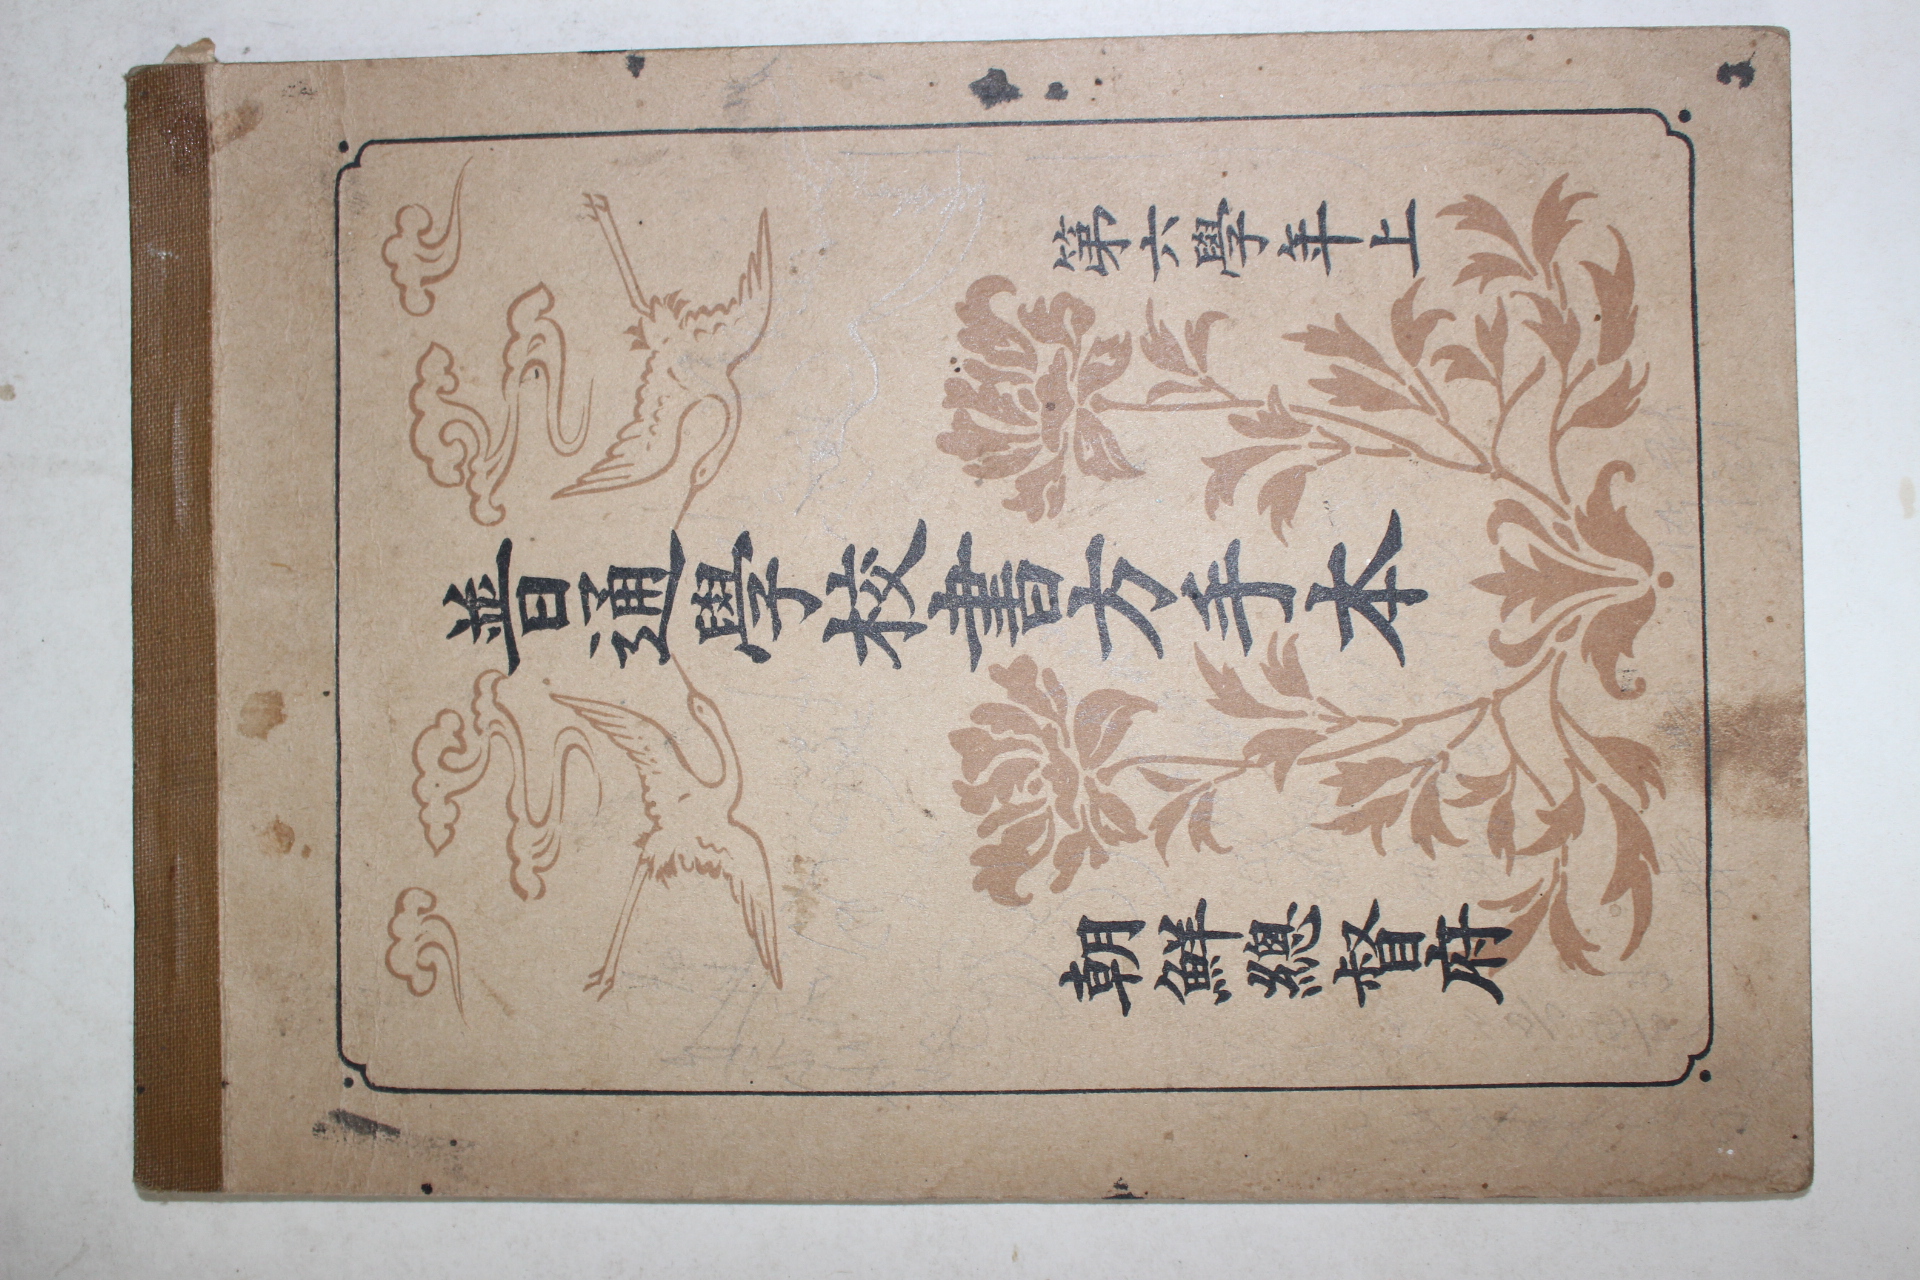 第六學年上
普通學校書方手本
朝鮮總督府